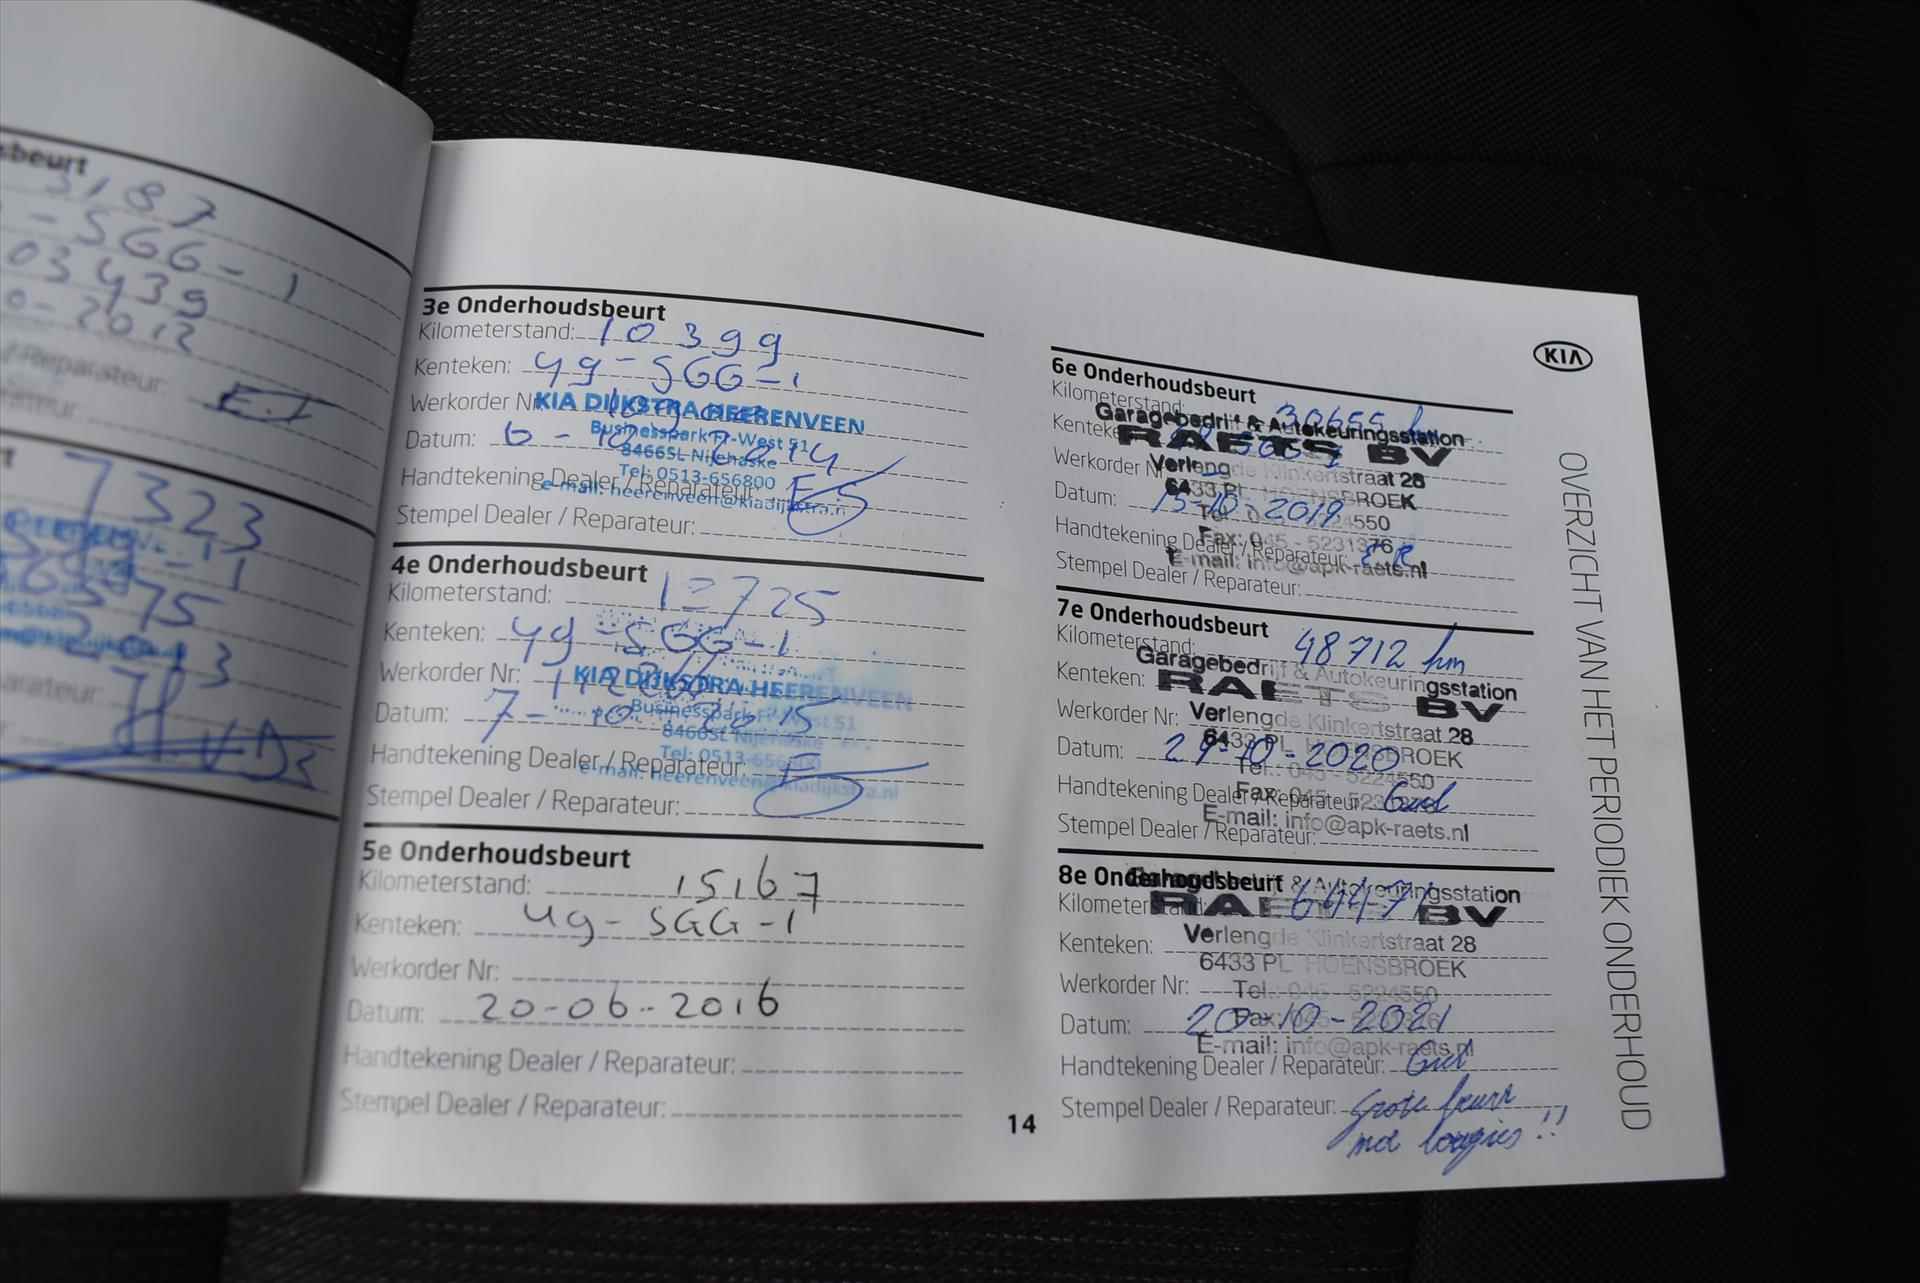 sbeurt
3187
-SGG-1
03439
0-2012
/Reparateur:
7323
75
2013
3e Onderhoudsbeurt
Kilometerstand: 10399
Kenteken: 49-SGG-1
Werkorder Nr
KIA DIJKSTRA HEERENVEEN
Businesspark Fr-West 51
8466SL Nijehaske
Tel: 0513-656800
e-mail: heerenveen@kiadijkstra.nl
Datum: 6-10-2014
Handtekening Dealer / Reparateur:
Stempel Dealer / Reparateur:
4e Onderhoudsbeurt
Kilometerstand: 12725
Kenteken: 49-SGG-1
Werkorder Nr:
KIA DIJKSTRA HEERENVEEN
Businesspark Fr-West 51
8466SL Nijehaske
Tel: 0513-656800
e-mail: heerenveen@kiadijkstra.nl
Datum: 7-10-2015
Handtekening Dealer / Reparateur:
Stempel Dealer / Reparateur:
5e Onderhoudsbeurt
Kilometerstand: 15167
Kenteken: 49-SGG-1
Werkorder Nr:
Datum: 20-06-2016
Handtekening Dealer / Reparateur:
Stempel Dealer / Reparateur:
14
KIA
6e Onderhoudsbeurt
Kilometerstand: 30655
Garagebedrijf & Autokeuringsstation
RAETS BV
Verlengde Klinkertstraat 28
6433 PL HOENSBROEK
Tel.: 045 - 5224550
Fax: 045 - 5231376
E-mail: info@apk-raets.nl
Kenteken:
Werkorder Nr
Datum: 15-10-2019
Handtekening Dealer / Reparateur:
Stempel Dealer / Reparateur:
7e Onderhoudsbeurt
Kilometerstand: 48712 km
Garagebedrijf & Autokeuringsstation
RAETS BV
Verlengde Klinkertstraat 28
6433 PL HOENSBROEK
Tel.: 045 - 5224550
Fax: 045 - 5231376
E-mail: info@apk-raets.nl
Kenteken:
Werkorder Nr:
Datum: 29-10-2020
Handtekening Dealer / Reparateur:
Stempel Dealer / Reparateur:
8e Onderhoudsbeurt
Garagebedrijf & Autokeuringsstation
RAETS BV
Verlengde Klinkertstraat 28
6433 PL HOENSBROEK
Tel.: 045 - 5224550
Fax: 045 - 5231376
E-mail: info@apk-raets.nl
Kilometerstand:
Kenteken:
Werkorder Nr:
Datum: 20-10-2021
Handtekening Dealer / Reparateur:
Stempel Dealer / Reparateur: Grote beurt
met bougies !!
OVERZICHT VAN HET PERIODIEK ONDERHOUD